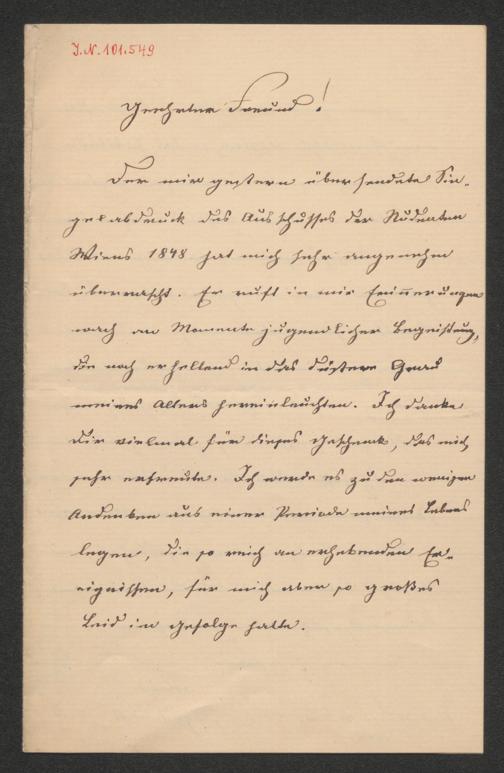 J.N. 101.549
Geehrter Freund!
Der mir gestern übersendete Sin-
gelabdruck des Ausschusses der Studenten
Wiens 1848 hat mich sehr angenehm
überrascht. Er ruft in mir Erinnerungen
wach an Momente jugendlicher Begeisterung,
die noch erhellend in das düstere Grau
meines Alters hereinleuchten. Ich danke
Dir vielmal für dieses Geschenk, das mich
sehr erfreute. Ich werde es zu den wenigen
Andenken aus einer Periode meines Lebens
legen, die so reich an erhebenden Er-
eignissen, für mich aber so großes
Leid im Gefolge hatte.